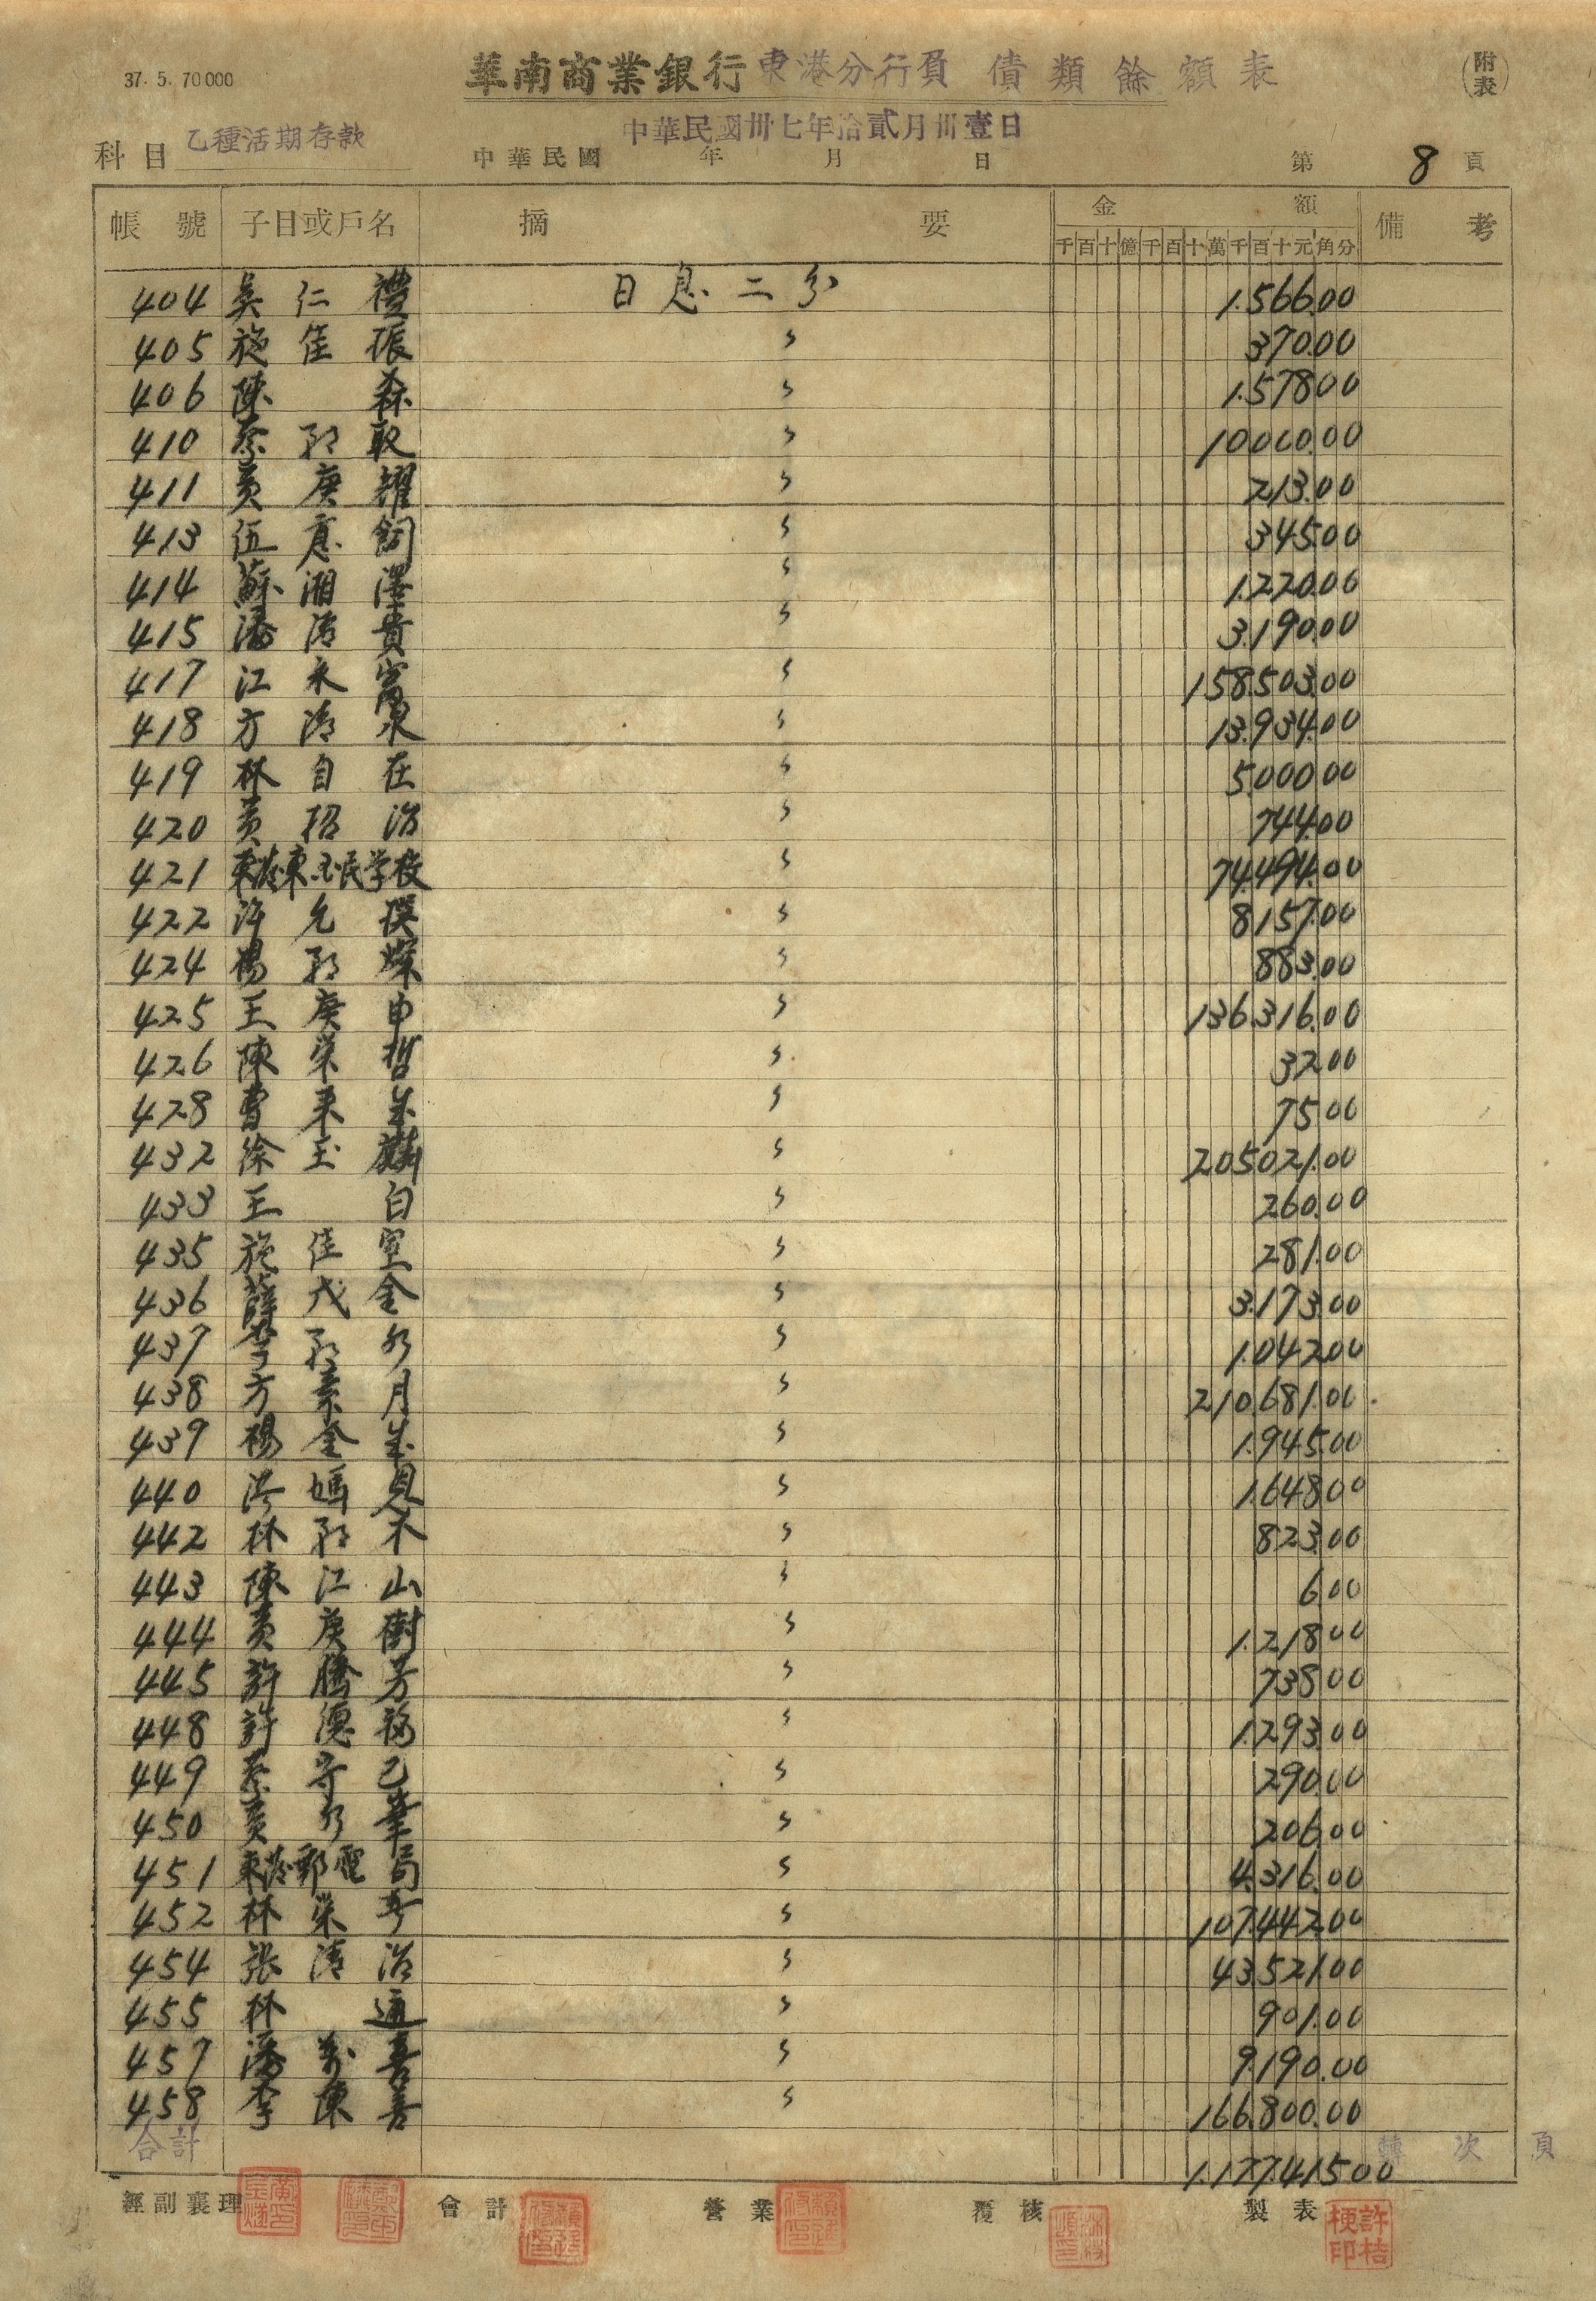 37. 5. 70000
華南商業銀行東港分行負債類餘額表
(附表)
中華民國卅七年拾貳月卅壹日
科目 乙種活期存款 中華民國 年 月 日 第 8 頁
帳號 子目或戶名 摘要 金額 備考
千百十億千百十萬千百十元角分
404 吳仁禮 日息二分 1.566.00
405 施隹振 〃 370.00
406 陳森 〃 1.578.00
410 蔡取 〃 10000.00
411 黃庚耀 〃 213.00
413 伍意飼 〃 345.00
414 蘇湘澤 〃 1.220.00
415 潘清貴 〃 3.190.00
417 江永富 〃 158.503.00
418 方清泉 〃 13.934.00
419 林自在 〃 5.000.00
420 黃招治 〃 744.00
421 東港東国民学校 〃 74.494.00
422 許允 〃 8157.00
424 楊燦 〃 883.00
425 王庚申 〃 136.316.00
426 陳榮哲 〃 32.00
428 曹来 〃 75.00
432 徐玉麟 〃 205021.00
433 王白 〃 260.00
435 施隹 〃 281.00
436 薛戊金 〃 3.173.00
437 李水 〃 1.042.00
438 方素月 〃 210.681.00
439 楊金 〃 1.945.00
440 洪媽恩 〃 1.648.00
442 林木 〃 823.00
443 陳江山 〃 6.00
444 黃庚樹 〃 1.218.00
445 許騰芳 〃 738.00
448 許德 〃 1.293.00
449 蔡守己 〃 290.00
450 黃水筆 〃 206.00
451 東港郵電局 〃 4.316.00
452 林榮 〃 107.442.00
454 張清治 〃 43.521.00
455 林通 〃 901.00
457 潘萬喜 〃 9.190.00
458 李陳善 〃 166.800.00
合計 1.177.415.00 轉次頁
經副襄理 會計 營業 覆核 製表
許桔梗印